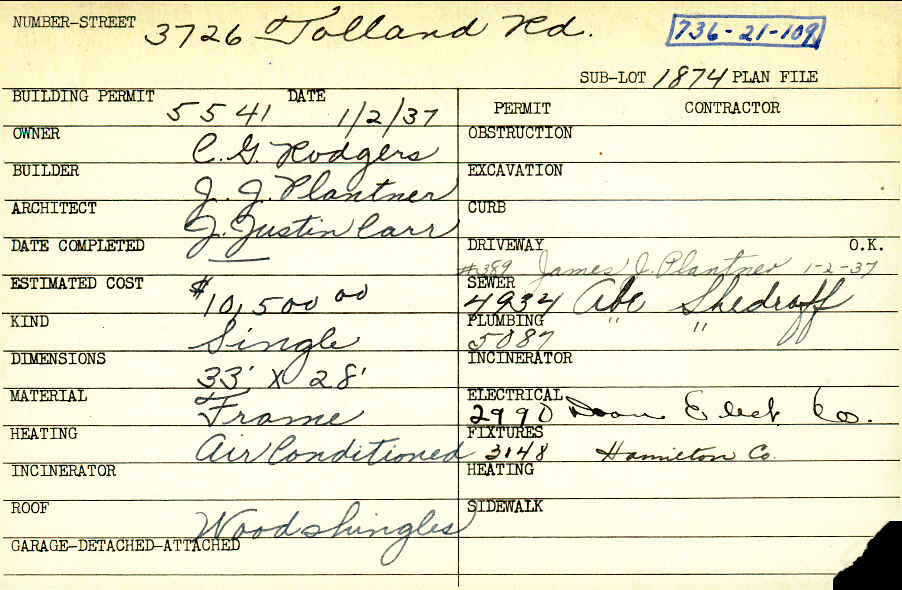 NUMBER-STREET 3726 Tolland Rd. 736-21-109
SUB-LOT 1874 PLAN FILE
BUILDING PERMIT 5541 DATE 1/2/37
PERMIT CONTRACTOR
OWNER C. G. Rodgers
OBSTRUCTION
BUILDER J. J. Plantner
EXCAVATION
ARCHITECT J. Justin Carr
CURB
DATE COMPLETED
DRIVEWAY O.K.
#389 James J. Plantner 1-2-37
ESTIMATED COST $10,500 00
SEWER 4934 Abe Shedroff
KIND Single
PLUMBING 5087 " "
DIMENSIONS 33' X 28'
INCINERATOR
MATERIAL Frame
ELECTRICAL 2990 Doan Elect. Co.
HEATING Air Conditioned
FIXTURES 3148 Hamilton Co.
INCINERATOR
HEATING
ROOF Wood shingles
SIDEWALK
GARAGE-DETACHED-ATTACHED